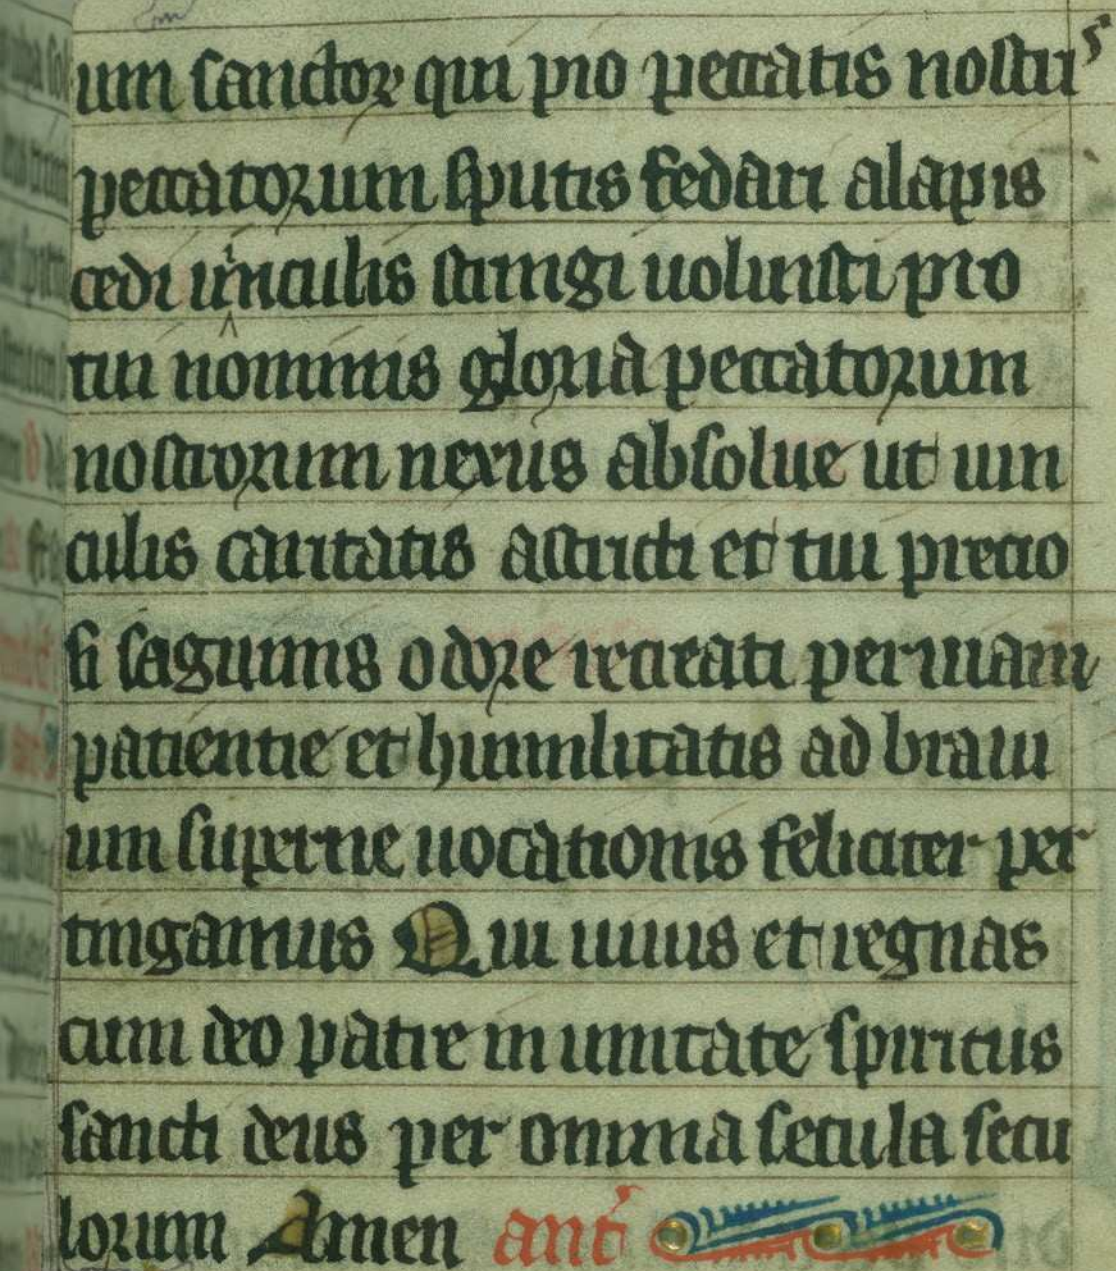 um sanctoꝝ qui pro peccatis nostris
peccatorum sputis fedari alapis
cedi uinculis stringi uoluisti pro
tui nominis gloria peccatorum
nostrorum nexus absolue ut uin
culis caritatis astricti et tui precio
si sanguinis odore recreati per uiam
patientie et humilitatis ad braui
um superne uocationis feliciter per
tingamus Qui uiuis et regnas
cum deo patre in unitate spiritus
sancti deus per omnia secula secu
lorum Amen ant̓